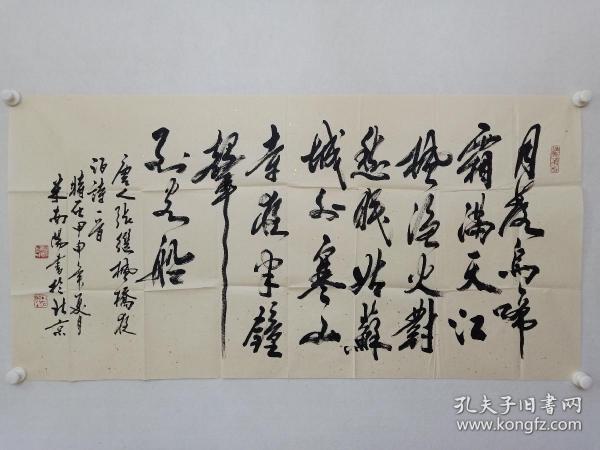 月落烏啼
霜滿天江
楓渔火對
愁眠姑蘇
城外寒山
寺夜半鐘
聲
到客船
唐人張繼楓橋夜
泊詩一首
時在甲申年夏月
書於北京
孔夫子旧书网
www.kongfz.com